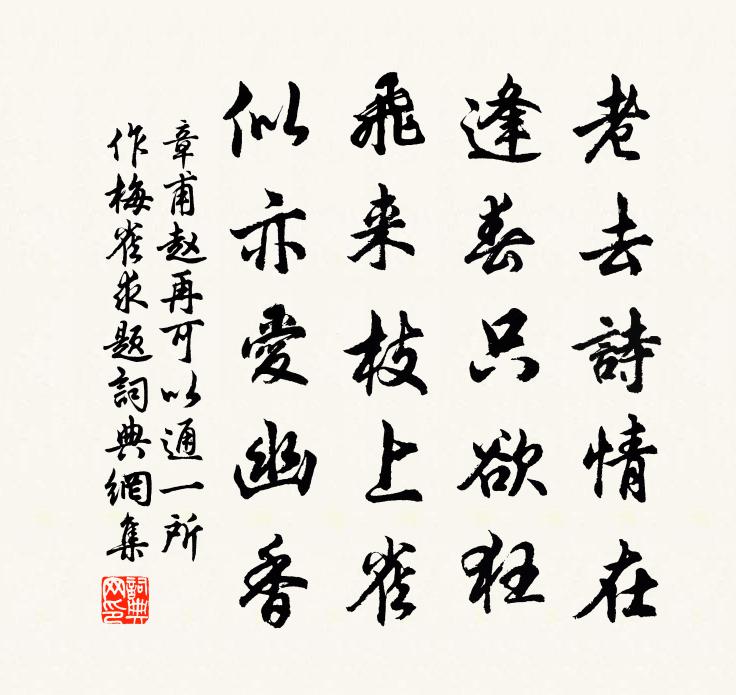 老去詩情在
逢春只欲狂
飛来枝上雀
似亦愛幽香
章甫赵再可以通一所
作梅雀求题詞典網集
詞典網印